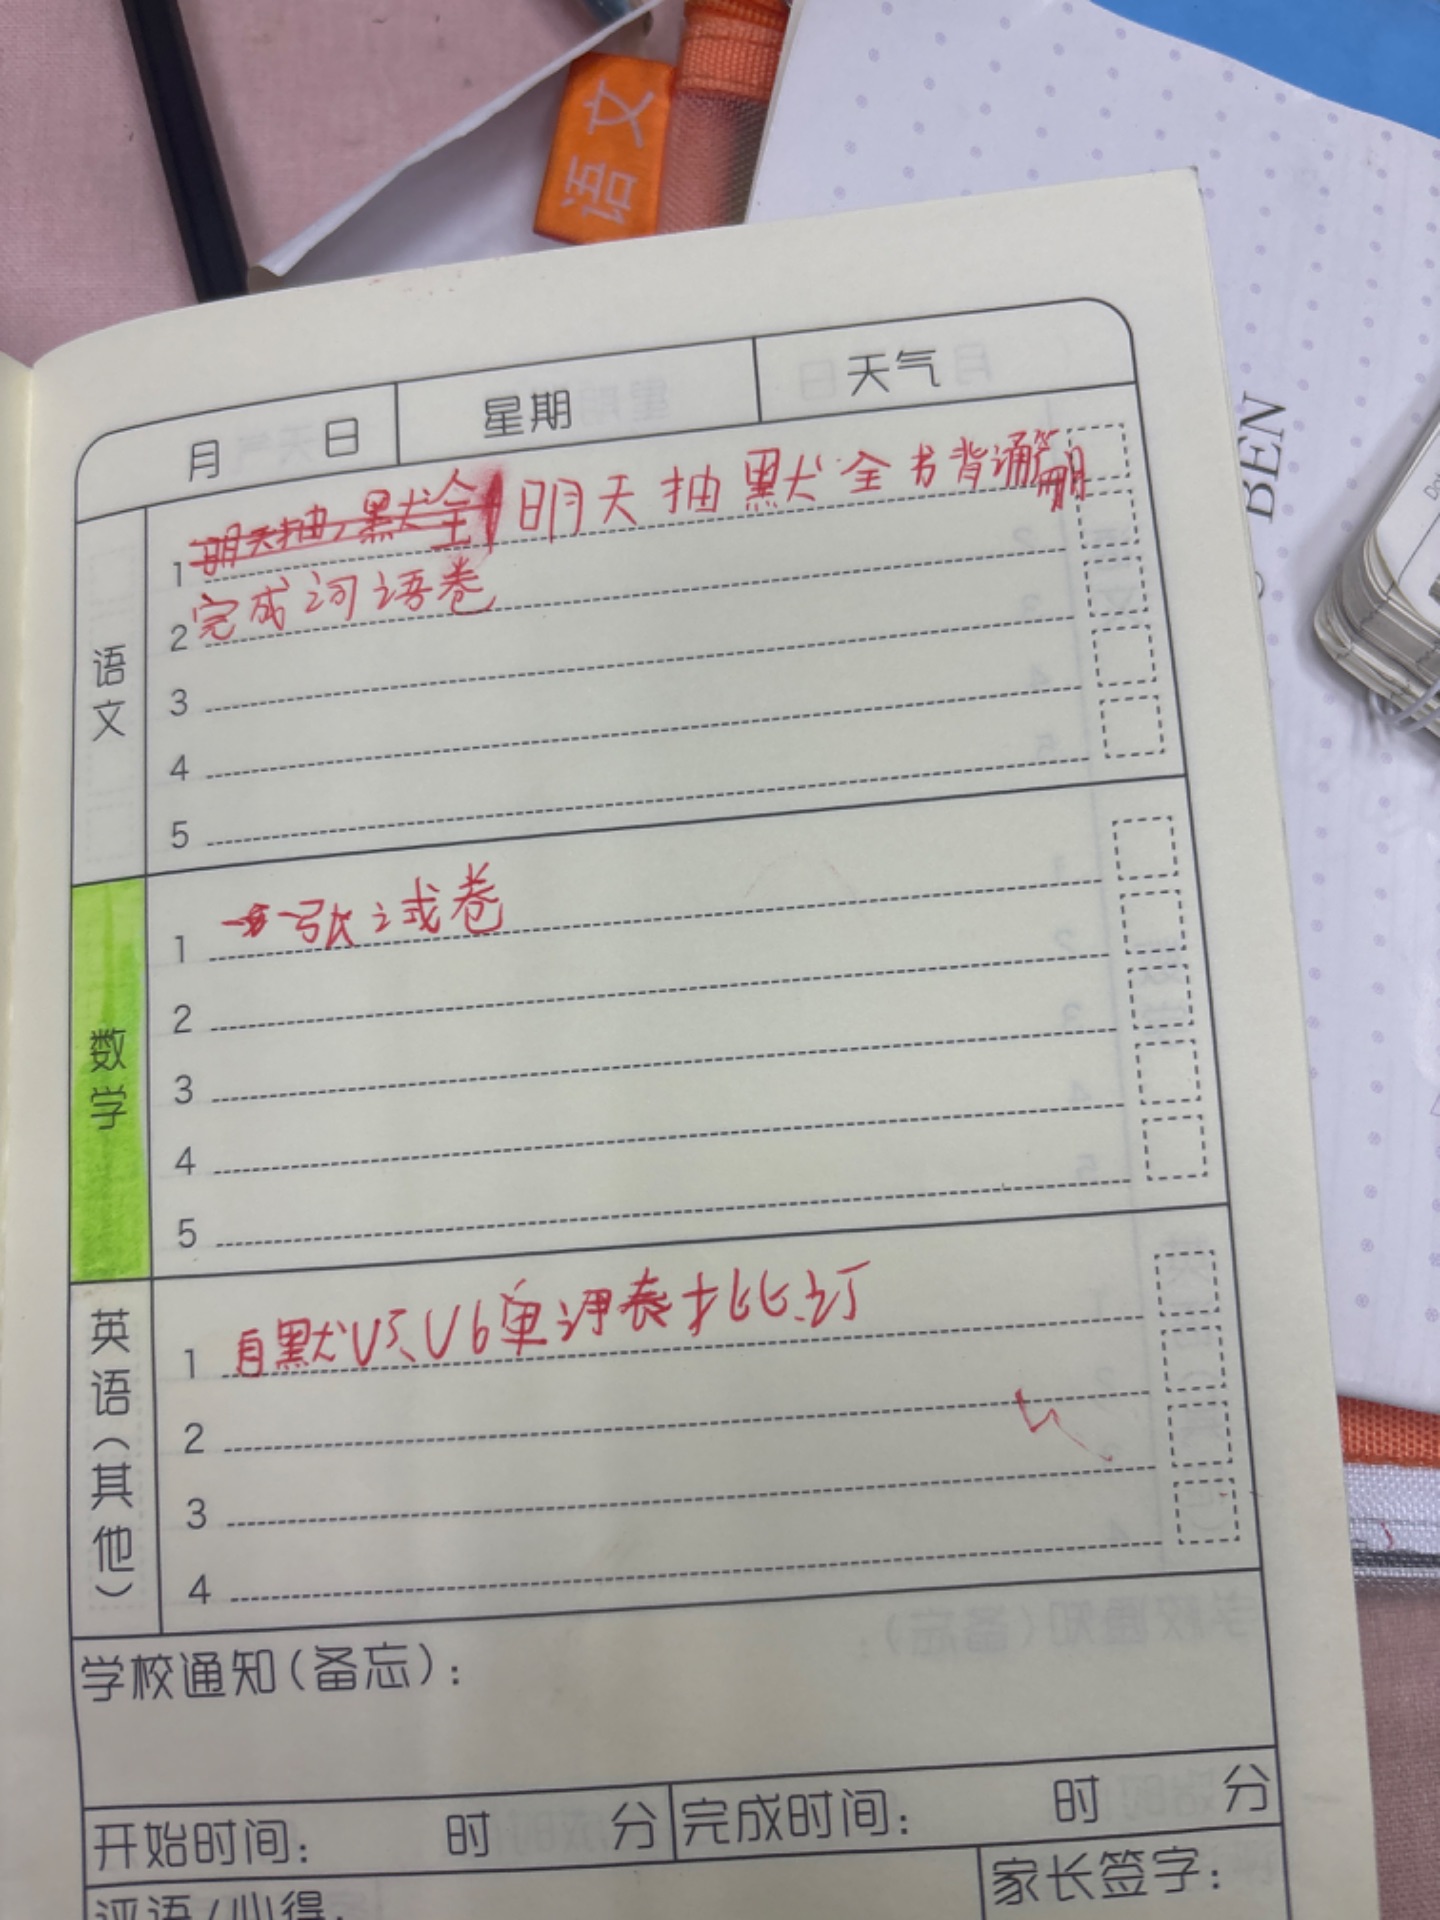 语文
月 日 星期 天气
语文
1 明天抽默全 明天抽默全书背诵篇目
2 完成词语卷
3
4
5
数学
1 一张试卷
2
3
4
5
英语(其他)
1 自默U5、U6单词表批订
2
3
4
学校通知(备忘):
开始时间: 时 分 完成时间: 时 分
评语/心得: 家长签字:
BEN